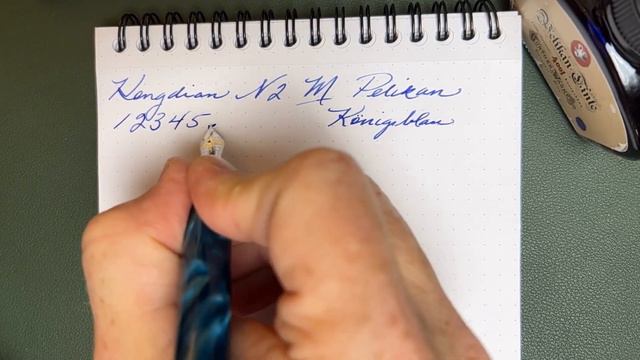 Hengdian N2 M Pelikan
12345 Königsblau
Pelikan-Tinte
4001